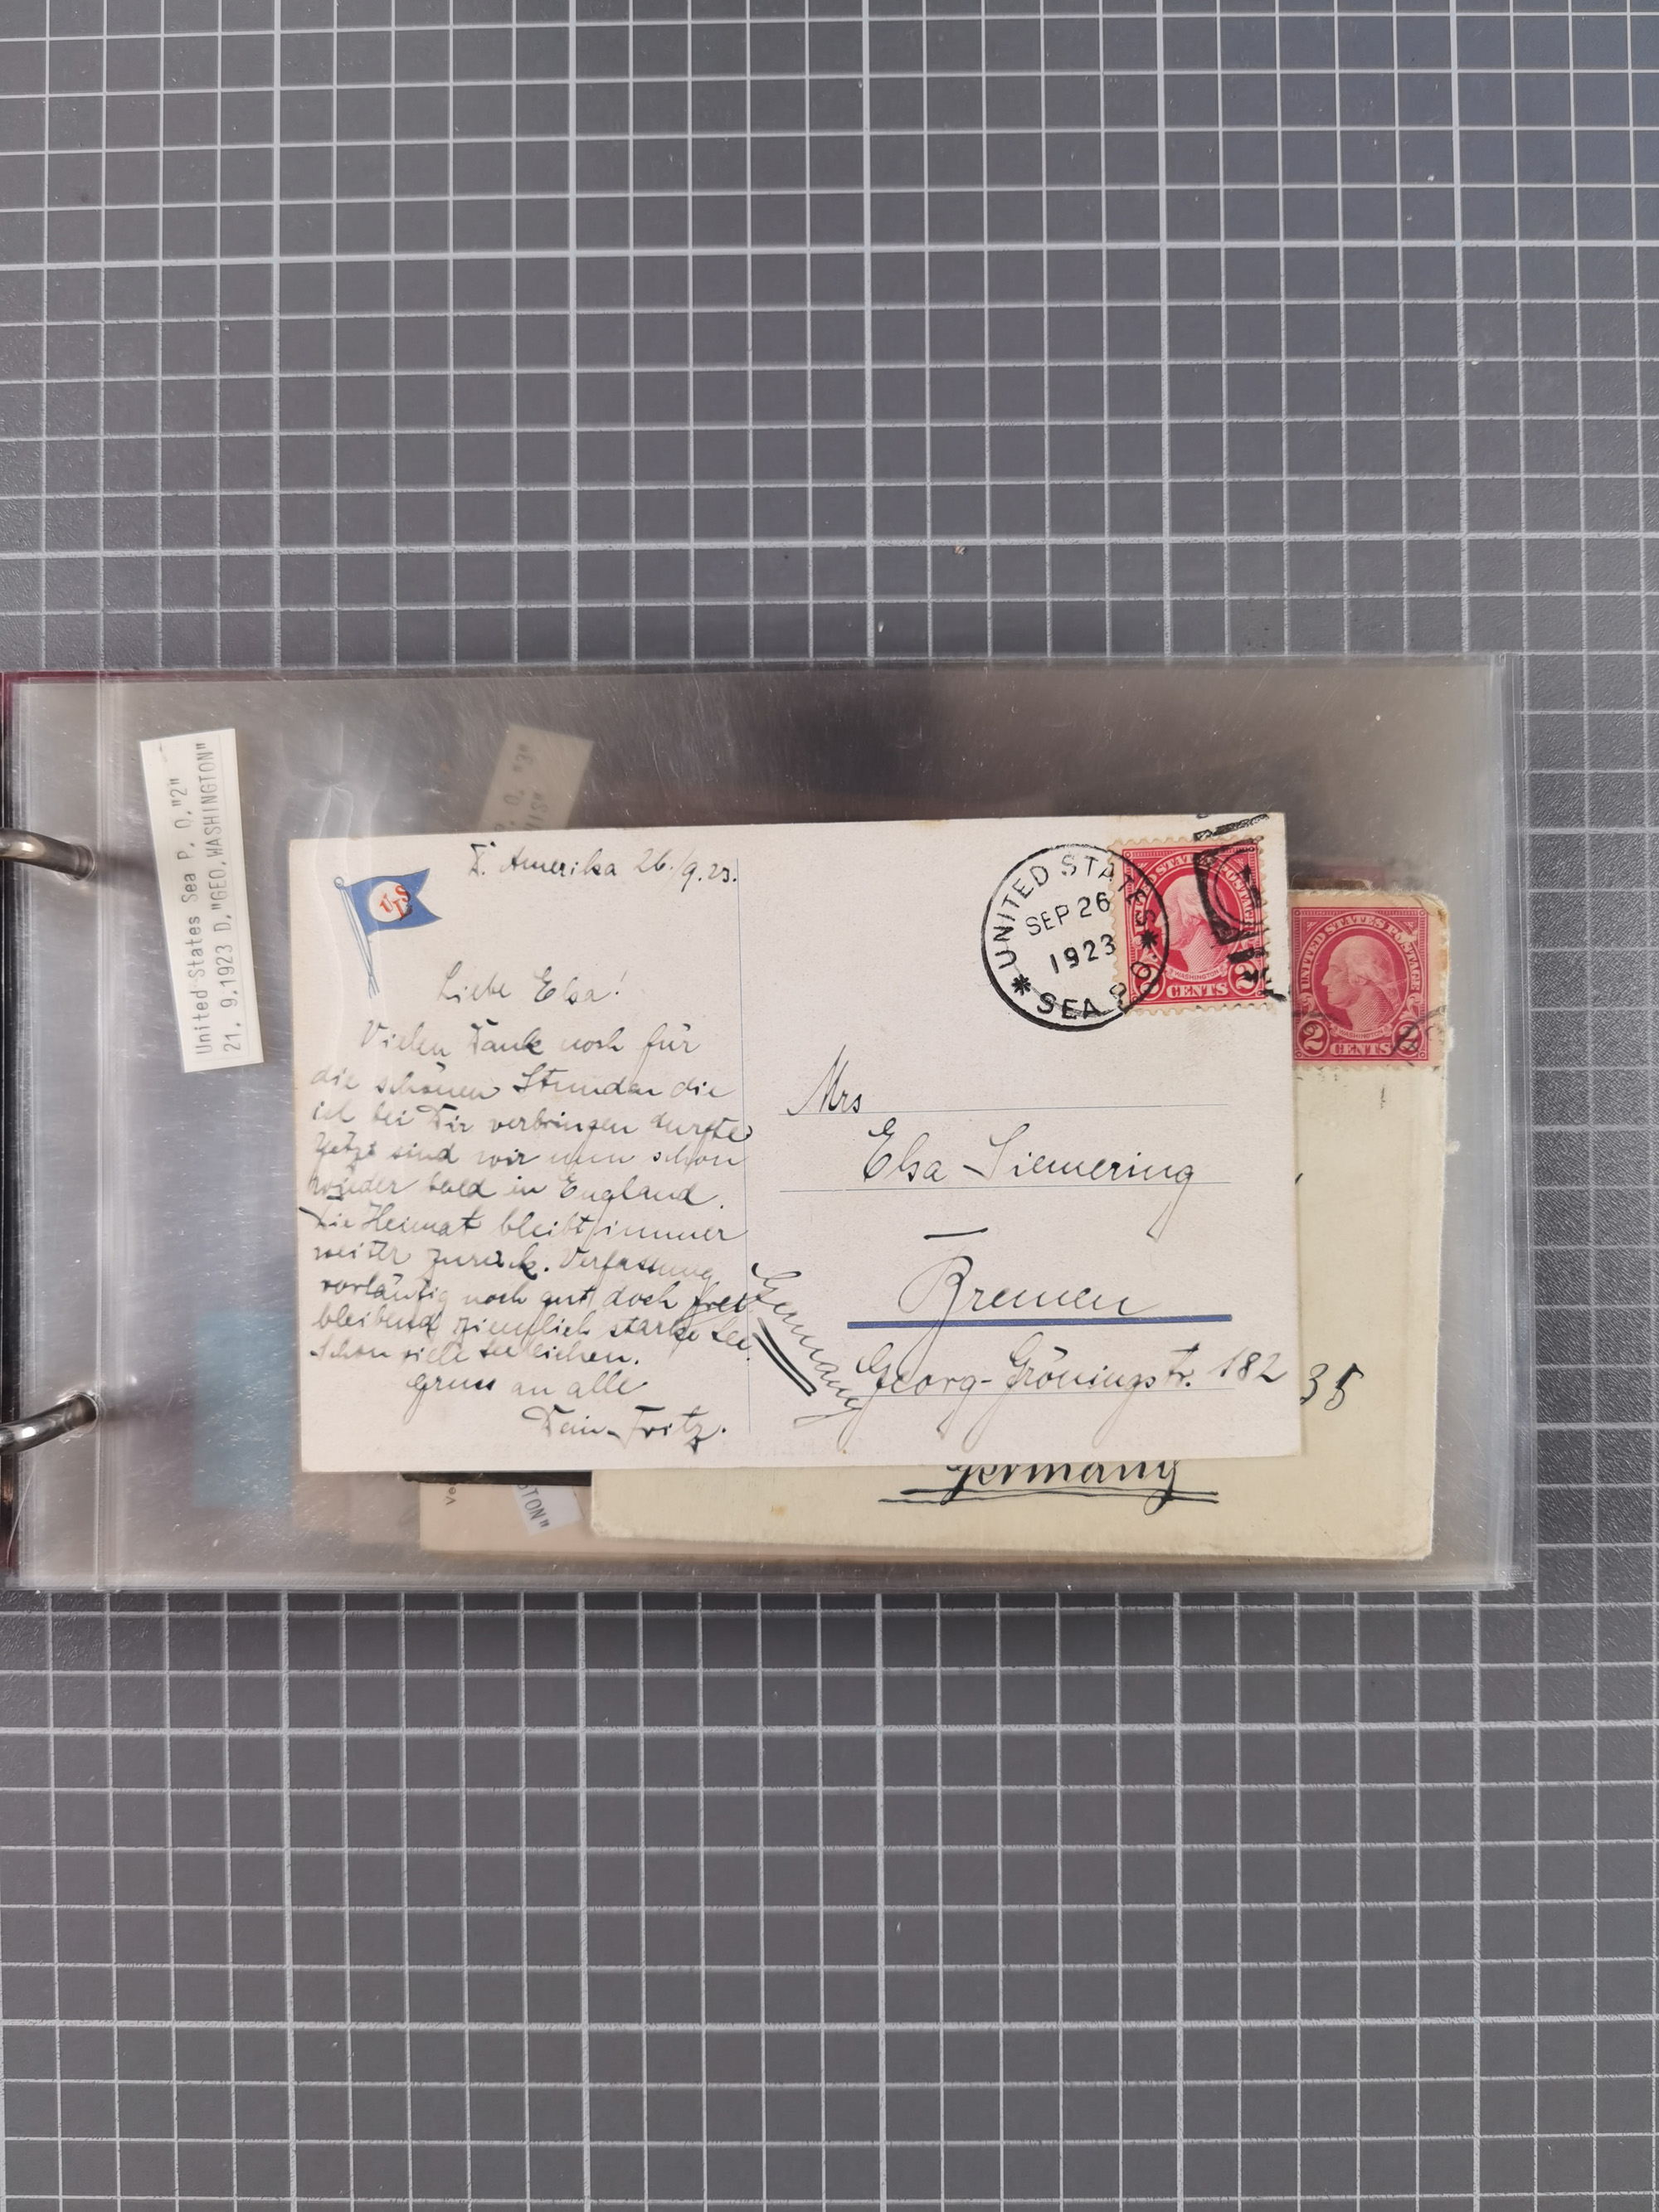 United States Sea P. O. "2"
21. 9.1923 D."GEO.WASHINGTON"
O. "3"
D. Amerika 26./9.23.
USL
Liebe Elsa!
Vielen Dank noch für
die schönen Stunden die
ich bei Dir verbringen durfte
Jetzt sind wir nun schon
wieder bald in England.
Die Heimat bleibt immer
weiter zurück. Verfassung
vorläufig noch gut, doch
bleibend ziemlich starke See.
Schon viele Seeleichen.
Gruss an alle
Dein Fritz.
UNITED STATES
SEP 26
1923
SEA P.O.
UNITED STATES POSTAGE
WASHINGTON
2 CENTS 2
UNITED STATES POSTAGE
WASHINGTON
2 CENTS 2
Mrs
Elsa Siemering
Bremen
Georg-Gröningstr. 182
Germany
35
Germany
TON"